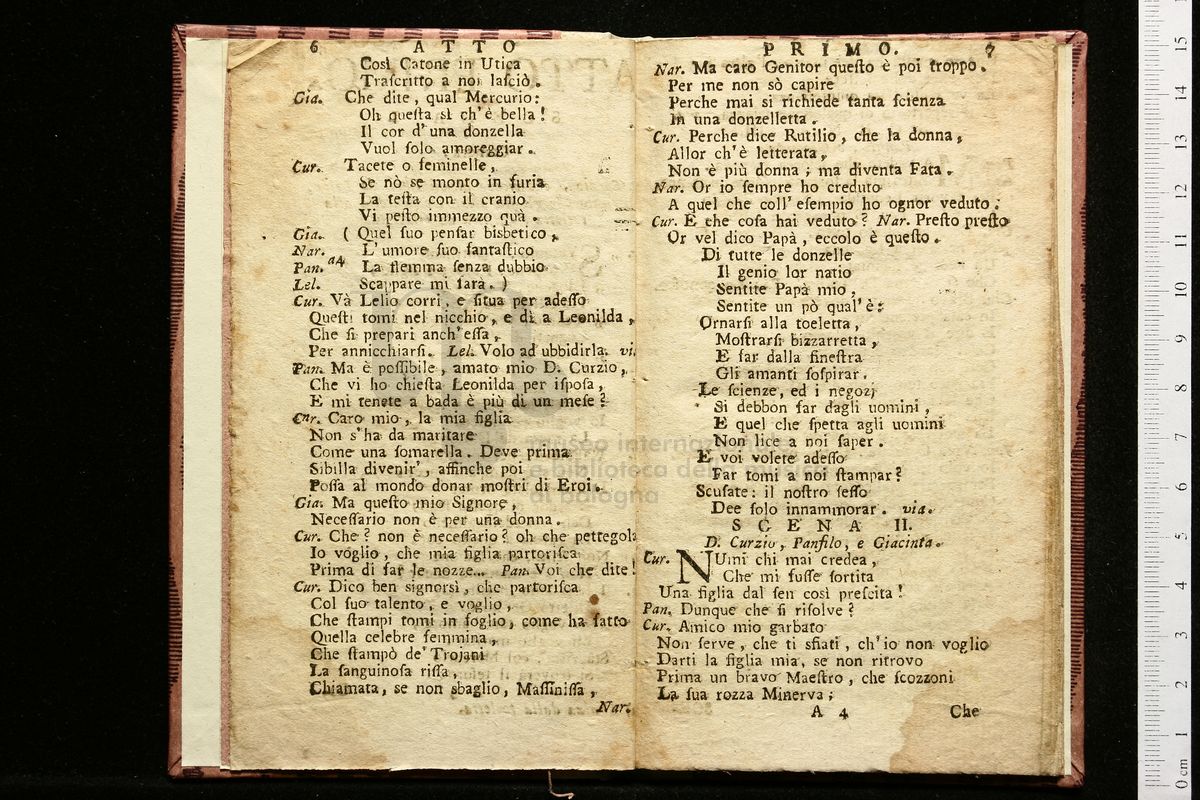 6 ATTO
Così Catone in Utica
Traſcritto a noi laſciò.
Gia. Che dite, qual Mercurio:
Oh queſta sì ch'è bella!
Il cor d'una donzella
Vuol ſolo amoreggiar.
Cur. Tacete o feminelle,
Se nò se monto in furia
La teſta con il cranio
Vi peſto immezzo quà.
Gia. ( Quel ſuo penſar bisbetico,
Nar. L'umore ſuo fantaſtico
Pan. a4 La flemma ſenza dubbio
Lel. Scappare mi farà. )
Cur. Và Lelio corri, e ſitua per adeſſo
Queſti tomi nel nicchio, e dì a Leonilda,
Che ſi prepari anch'eſſa,
Per annicchiarſi. Lel. Volo ad ubbidirla. vi.
Pan. Ma è poſſibile, amato mio D. Curzio,
Che vi ho chieſta Leonilda per iſpoſa,
E mi tenete a bada è più di un meſe?
Cnr. Caro mio, la mia figlia
Non s'ha da maritare
Come una ſomarella. Deve prima
Sibilla divenir', affinche poi
Poſſa al mondo donar moſtri di Eroi.
Gia. Ma queſto mio Signore,
Neceſſario non è per una donna.
Cur. Che? non è neceſſario? oh che pettegola
Io voglio, che mia figlia partoriſca
Prima di far le nozze... Pan. Voi che dite!
Cur. Dico ben signorsì, che partoriſca
Col ſuo talento, e voglio,
Che ſtampi tomi in foglio, come ha fatto
Quella celebre femmina,
Che ſtampò de' Trojani
La ſanguinoſa riſſa,
Chiamata, se non sbaglio, Maſſiniſſa,
Nar.
PRIMO. 7
Nar. Ma caro Genitor queſto è poi troppo.
Per me non sò capire
Perche mai si richiede tanta ſcienza
In una donzelletta.
Cur. Perche dice Rutilio, che la donna,
Allor ch'è letterata,
Non è più donna; ma diventa Fata.
Nar. Or io ſempre ho creduto
A quel che coll' eſempio ho ognor veduto.
Cur. E che coſa hai veduto? Nar. Preſto preſto
Or vel dico Papà, eccolo è queſto.
Di tutte le donzelle
Il genio lor natio
Sentite Papà mio,
Sentite un pò qual'è:
Ornarſi alla toeletta,
Moſtrarſi bizzarretta,
E far dalla fineſtra
Gli amanti ſoſpirar.
Le ſcienze, ed i negozj
Si debbon far dagli uomini,
E quel che ſpetta agli uomini
Non lice a noi ſaper.
E voi volete adeſſo
Far tomi a noi ſtampar?
Scuſate: il noſtro ſeſſo
Dee ſolo innammorar. via.
SCENA II.
D. Curzio, Panfilo, e Giacinta.
Cur. NUmi chi mai credea,
Che mi fuſſe ſortita
Una figlia dal ſen così preſcita!
Pan. Dunque che ſi riſolve?
Cur. Amico mio garbato
Non ſerve, che ti sfiati, ch'io non voglio
Darti la figlia mia, se non ritrovo
Prima un bravo Maeſtro, che ſcozzoni
La ſua rozza Minerva;
A 4 Che
museo internazionale
e biblioteca della musica
di bologna
0 cm 1 2 3 4 5 6 7 8 9 10 11 12 13 14 15